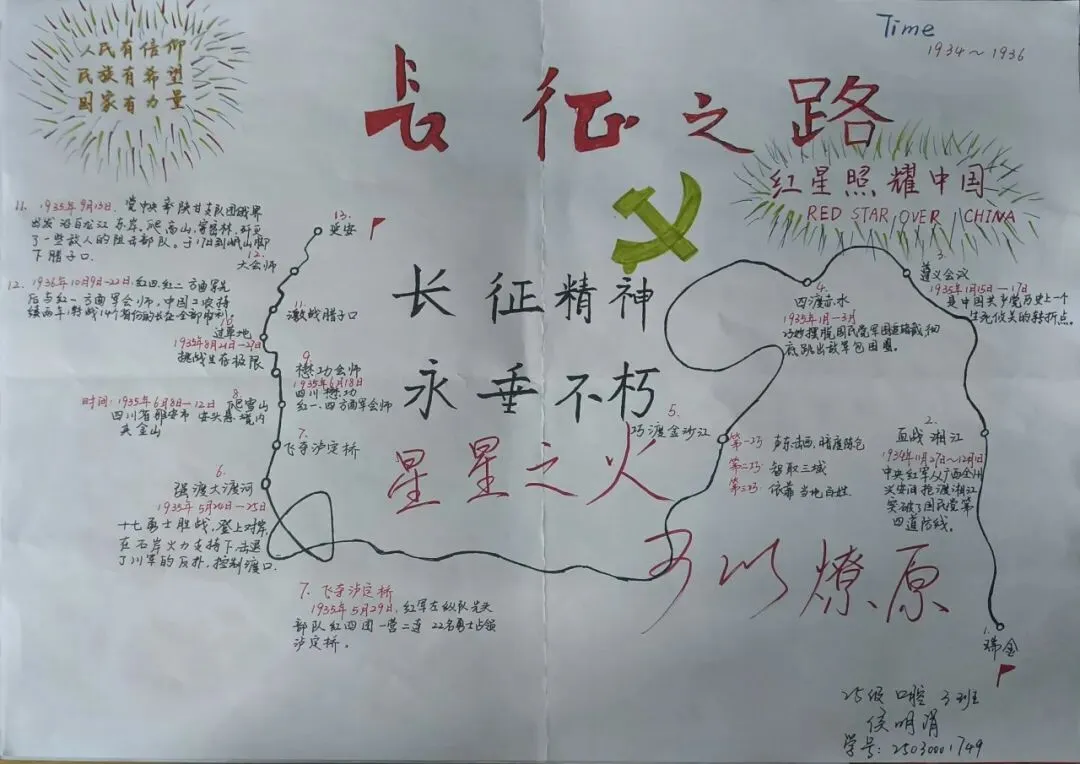 人民有信仰
民族有希望
国家有力量
Time
1934~1936
长征之路
红星照耀中国
RED STAR OVER CHINA
长征精神
永垂不朽
星星之火
可以燎原
13.
延安
11. 1935年9月13日. 党中央率陕甘支队围俄界
出发 沿白龙江东岸. 爬高山, 穿密林.
了一些敌人的阻击部队。于17日到岷山脚
下腊子口.
12.
大会师
12. 1936年10月9日-22日. 红四红二方面军先
后与红一方面军会师, 中国工农
11.
激战腊子口
10.
过草地
1935年8月21日-29日
挑战生存极限
9.
懋功会师
1935年6月18日
四川懋功
红一.四方面军会师
8.
爬雪山
时间: 1935年6月8日-12日
四川省雅安市 境内
夹金山
7.
飞夺泸定桥
6.
强渡大渡河
1935年5月24日-25日
十七勇士胜战, 登上对岸,
在右岸火力支持下.击退
了川军的反扑, 控制渡口.
7. 飞夺泸定桥
1935年5月29日, 红军左纵队先头
部队红四团一营二连 22名勇士占领
泸定桥。
5.
巧渡金沙江
第一巧 声东击西, 暗度陈仓
第二巧: 智取三城
第三巧: 依靠当地百姓
4.
四渡赤水
1935年1月-3月
巧妙摆脱国民党军围追堵截, 彻
底跳出敌军包围圈。
3.
遵义会议
1935年1月15日-17日
是中国共产党历史上一个
生死攸关的转折点。
2.
血战湘江
1934年11月27日~12月1日
中央红军从广西全州
兴安间抢渡湘江
突破了国民党第
四道防线。
1.
瑞金
25级口腔3班
侯明涓
学号: 25030001749